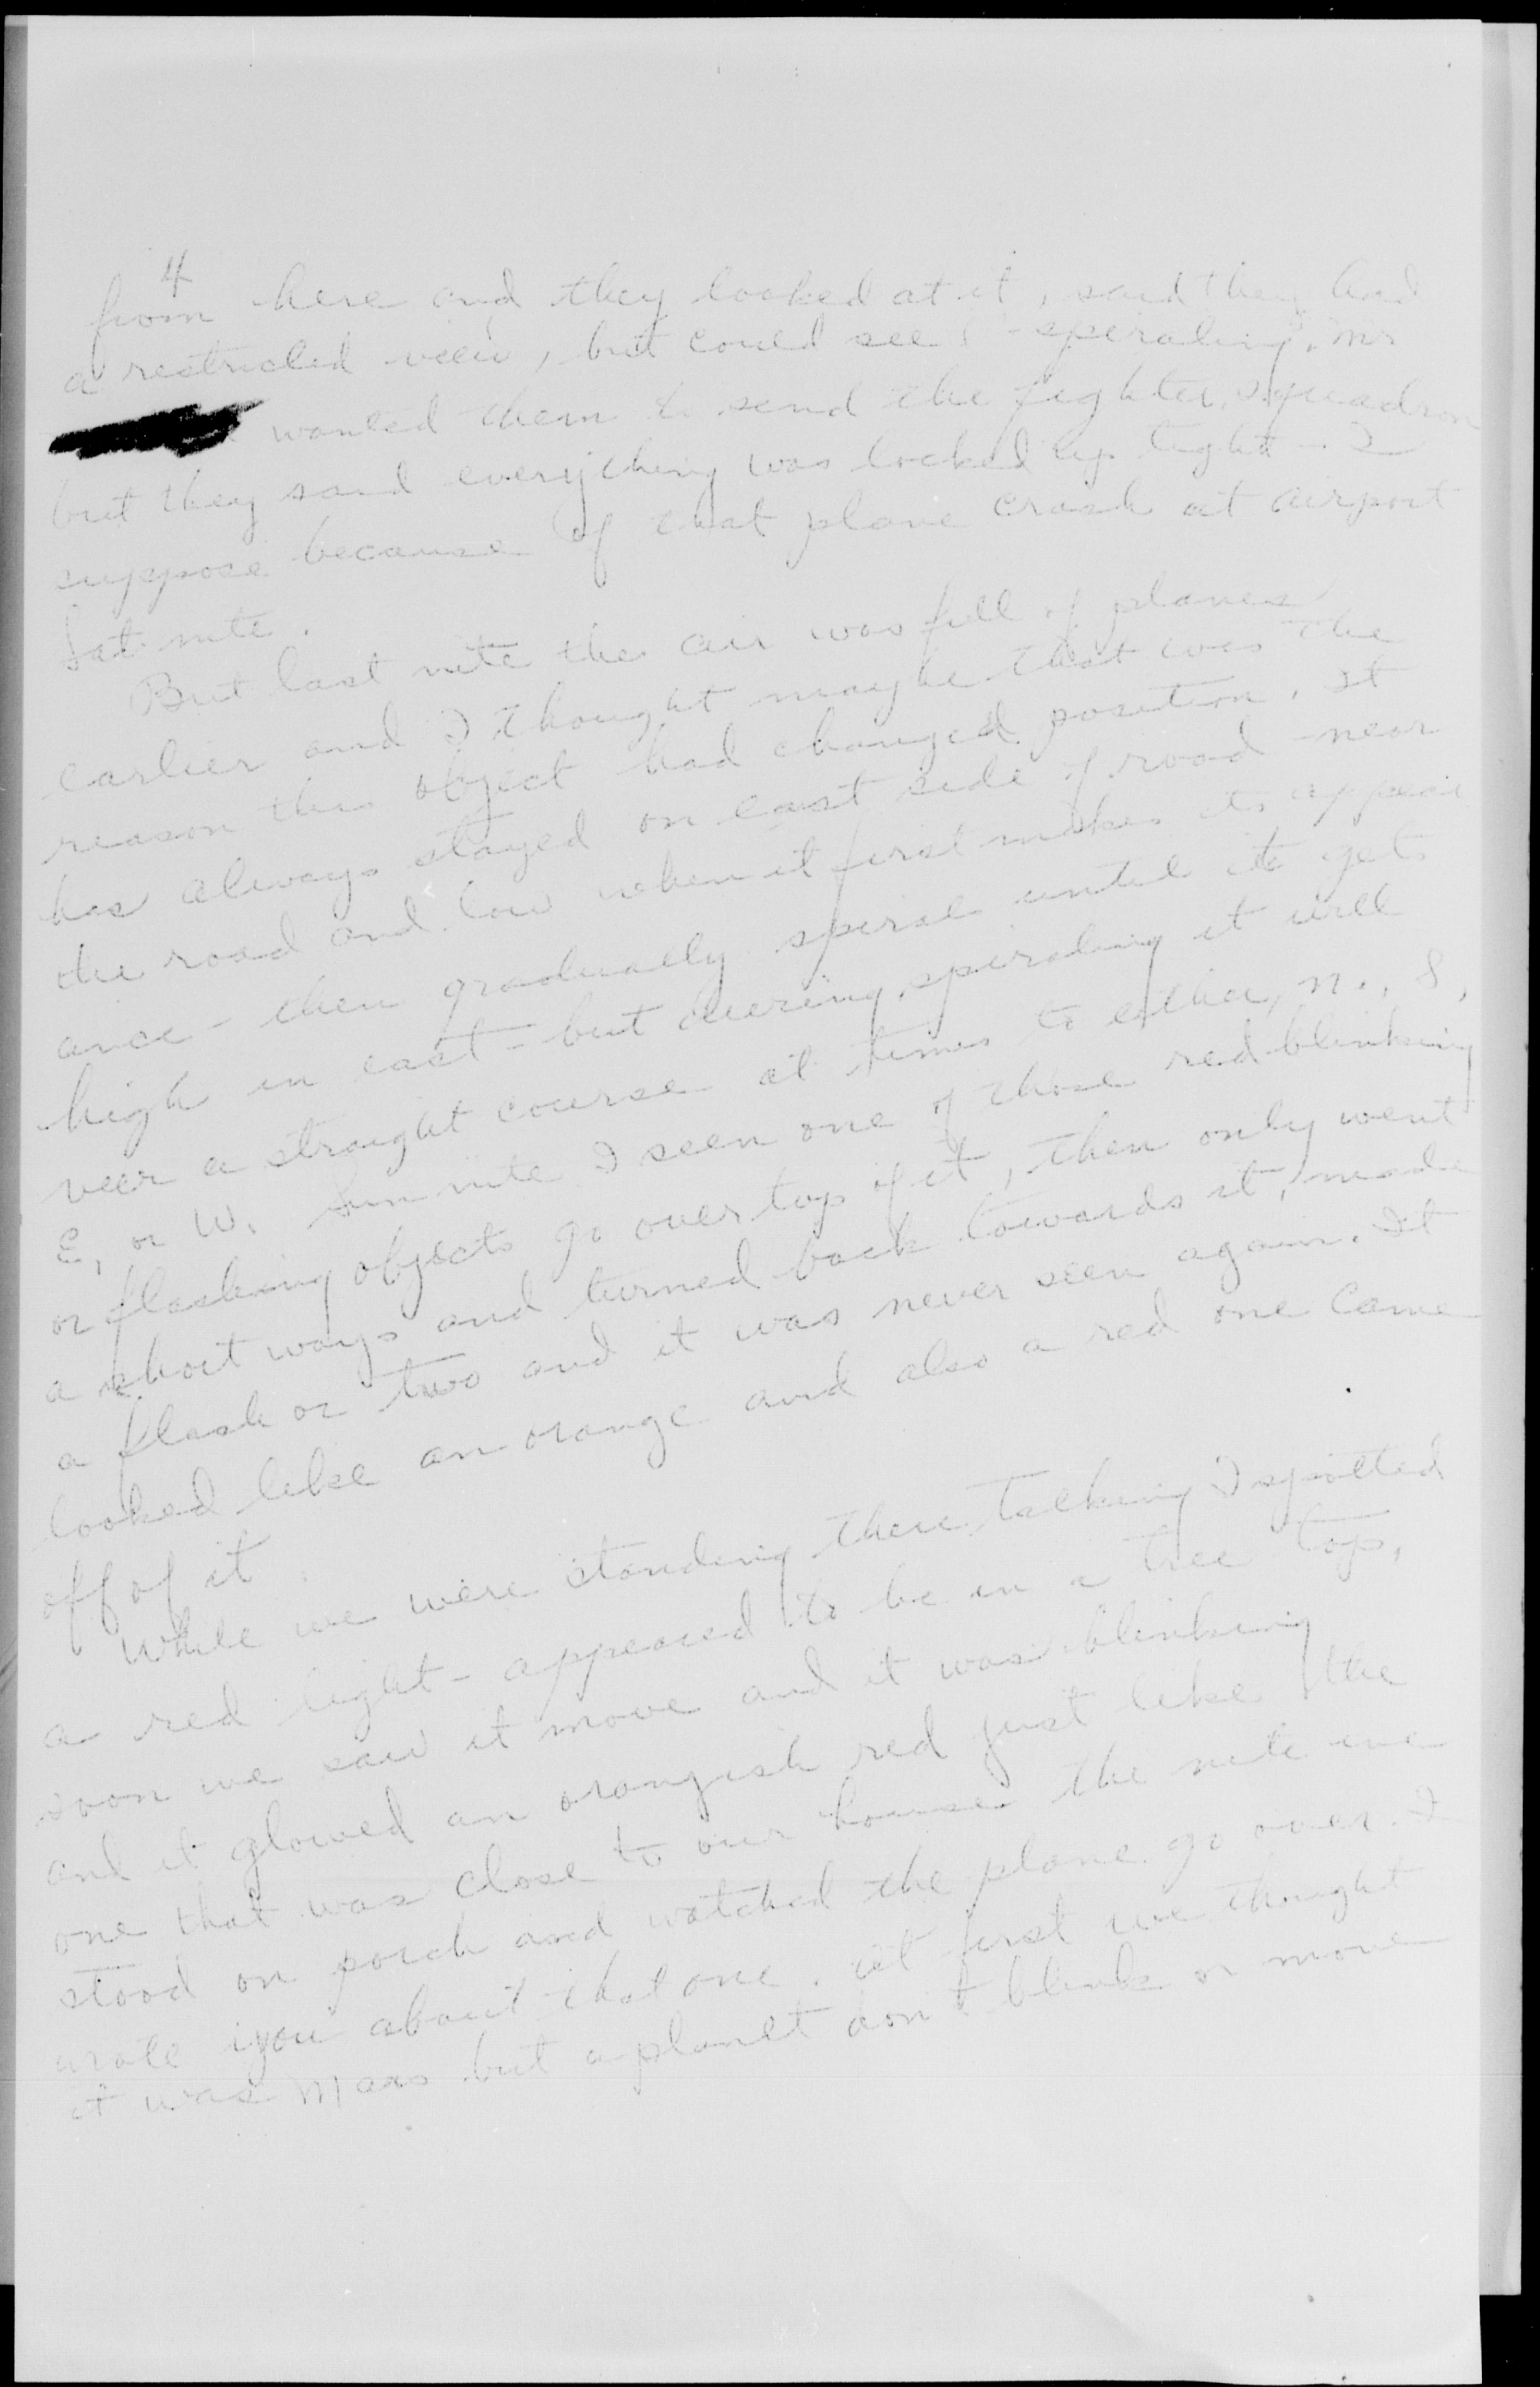 4
from here and they looked at it, said they had
a restricted view, but could see "speraling". Mr
wanted them to send the fighter squadron
but they said everything was locked up tight - I
suppose because of that plane crash at airport
Sat. nite.
But last nite the air was full of planes
earlier and I thought maybe that was the
reason the object had changed position. It
has always stayed on east side of road near
the road and low when it first makes its appear
ance - then gradually speral until it gets
high in east - but during speraling it will
veer a straight course at times to either, N., S,
E, or W. Sun nite I seen one of those red blinking
or flashing objects go over top of it, then only went
a short ways and turned back towards it, made
a flash or two and it was never seen again. It
looked like an orange and also a red one came
off of it.
While we were standing there talking I spotted
a red light - appeared to be in a tree top,
soon we saw it move and it was blinking
and it glowed an orangish red just like the
one that was close to our house the nite we
stood on porch and watched the plane go over. I
wrote you about that one. At first we thought
it was Mars but a planet don't blink or move